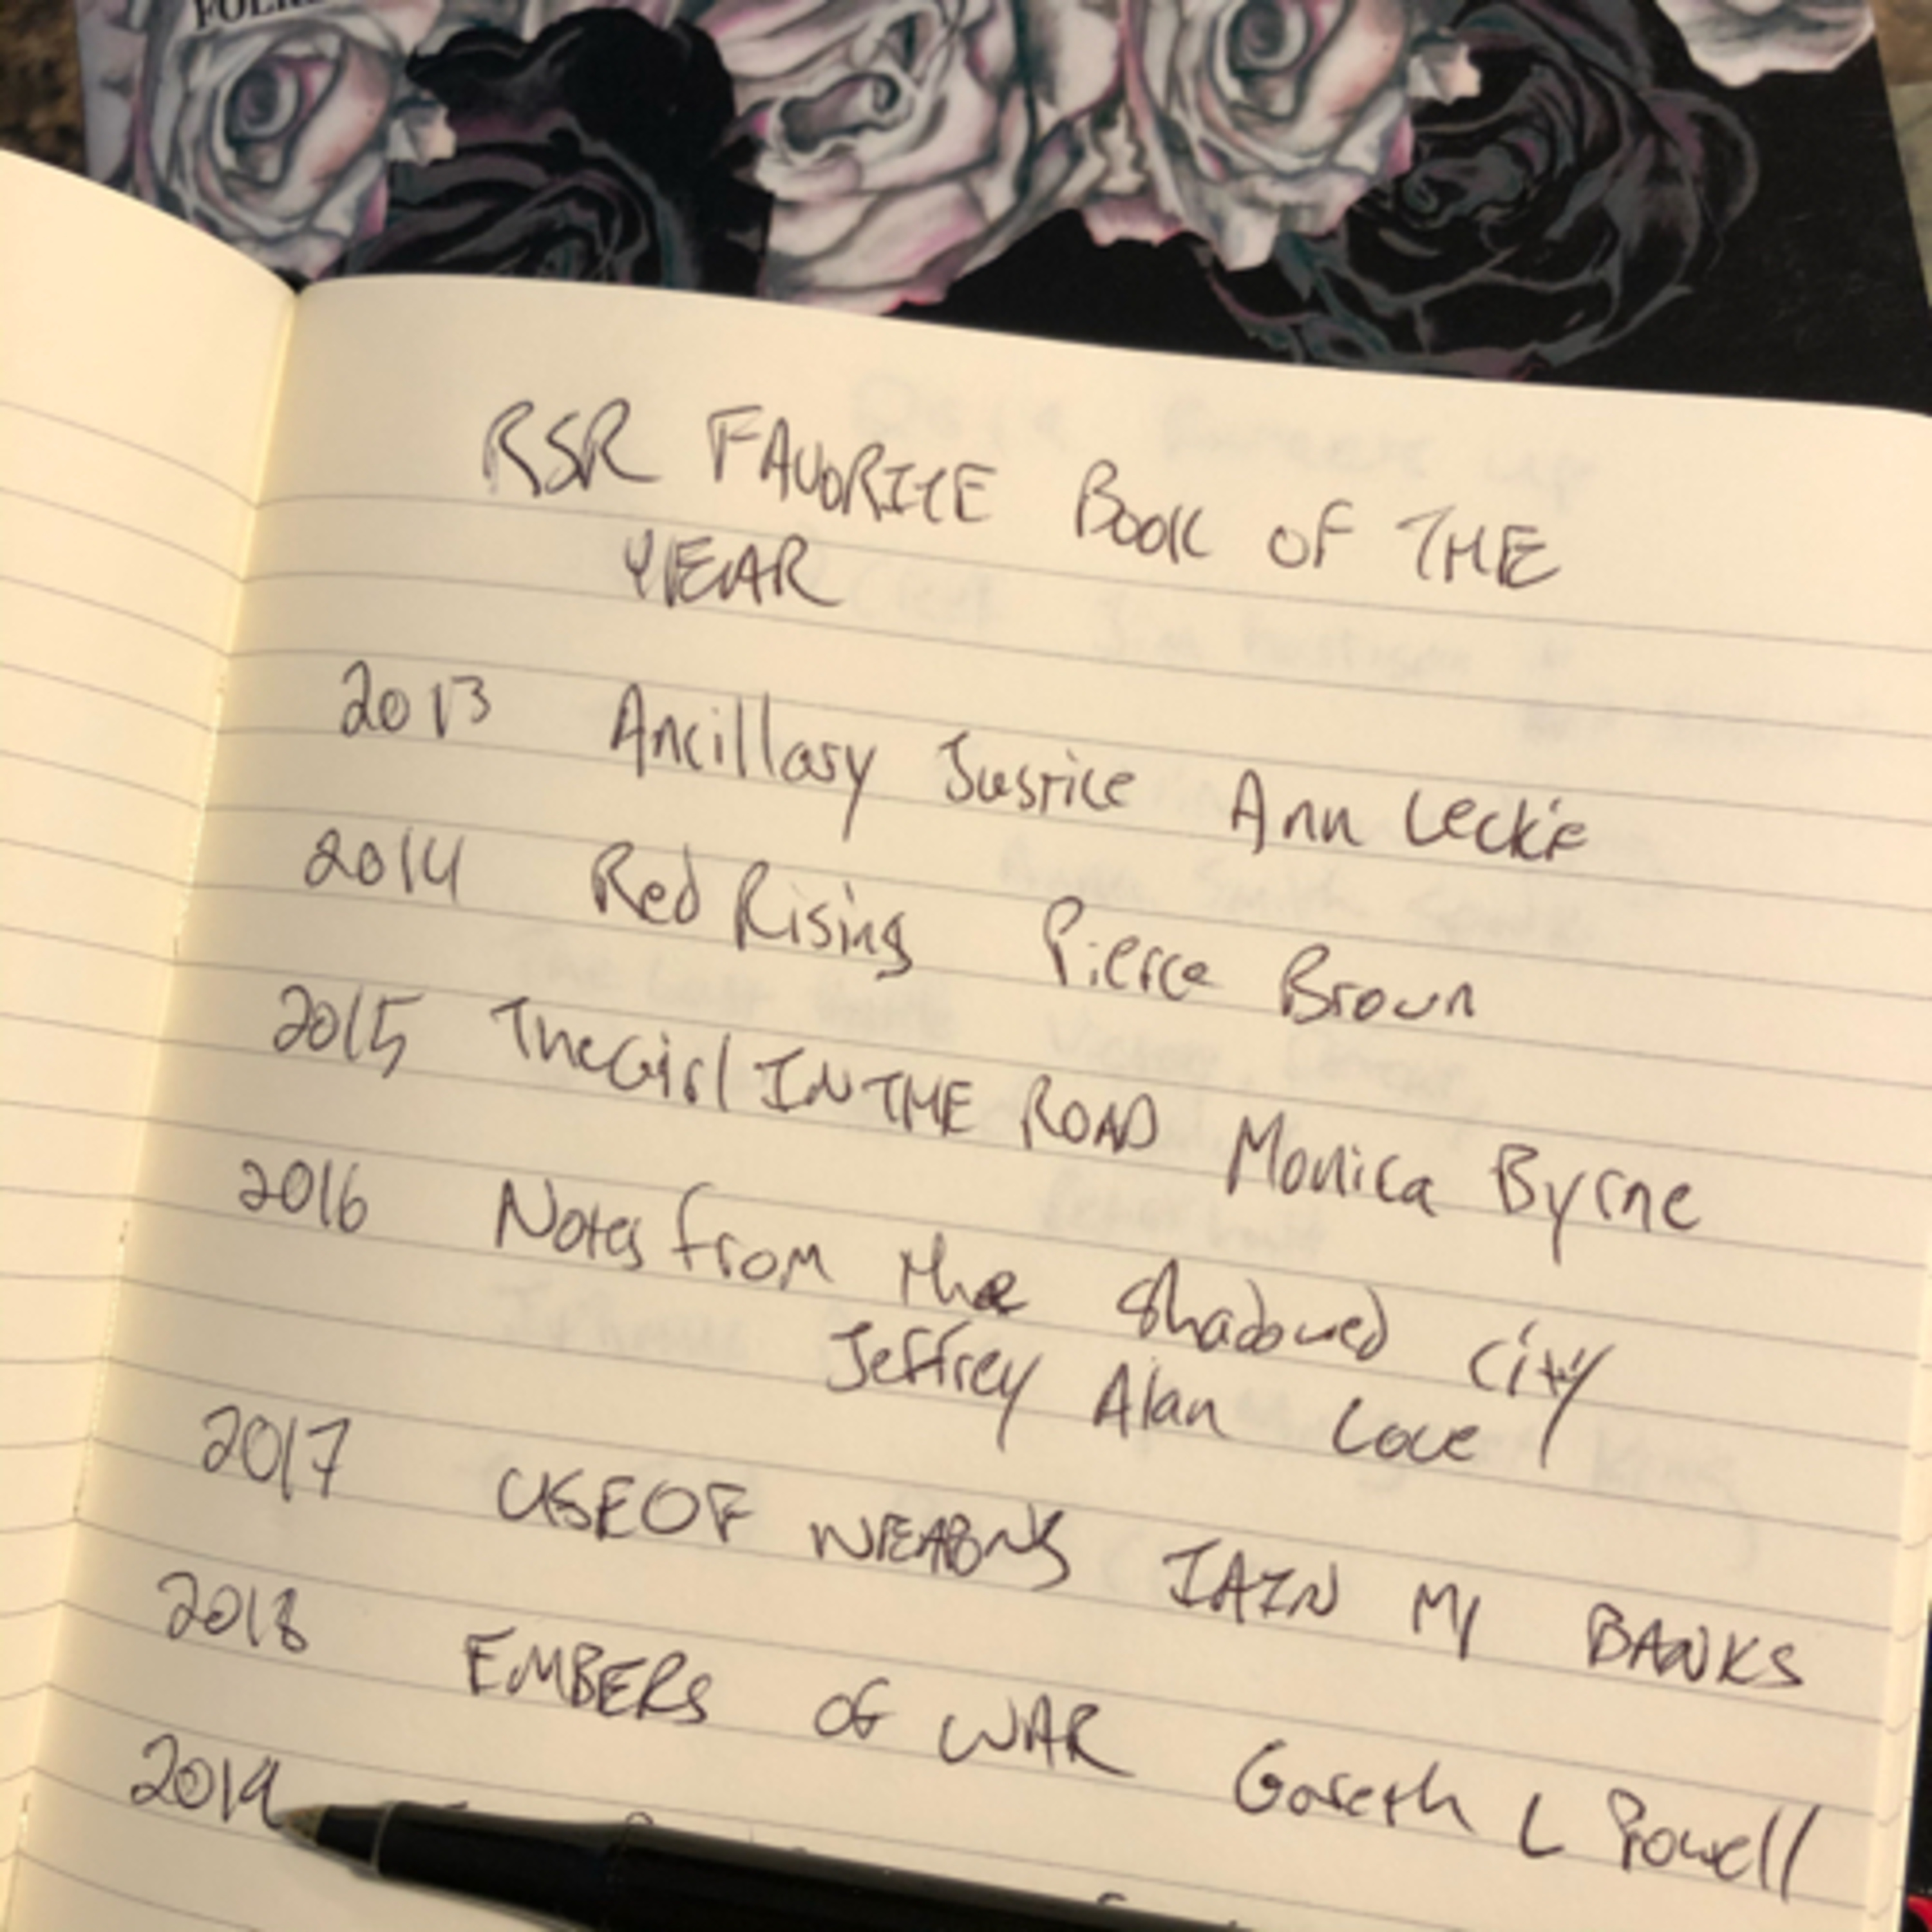 RSR FAVORITE BOOK OF THE
YEAR
2013 Ancillary Justice Ann Leckie
2014 Red Rising Pierce Brown
2015 The Girl IN THE ROAD Monica Byrne
2016 Notes from the Shadowed City
Jeffrey Alan Love
2017 USE OF WEAPONS IAIN M BANKS
2018 EMBERS OF WAR Gareth L Powell
2019